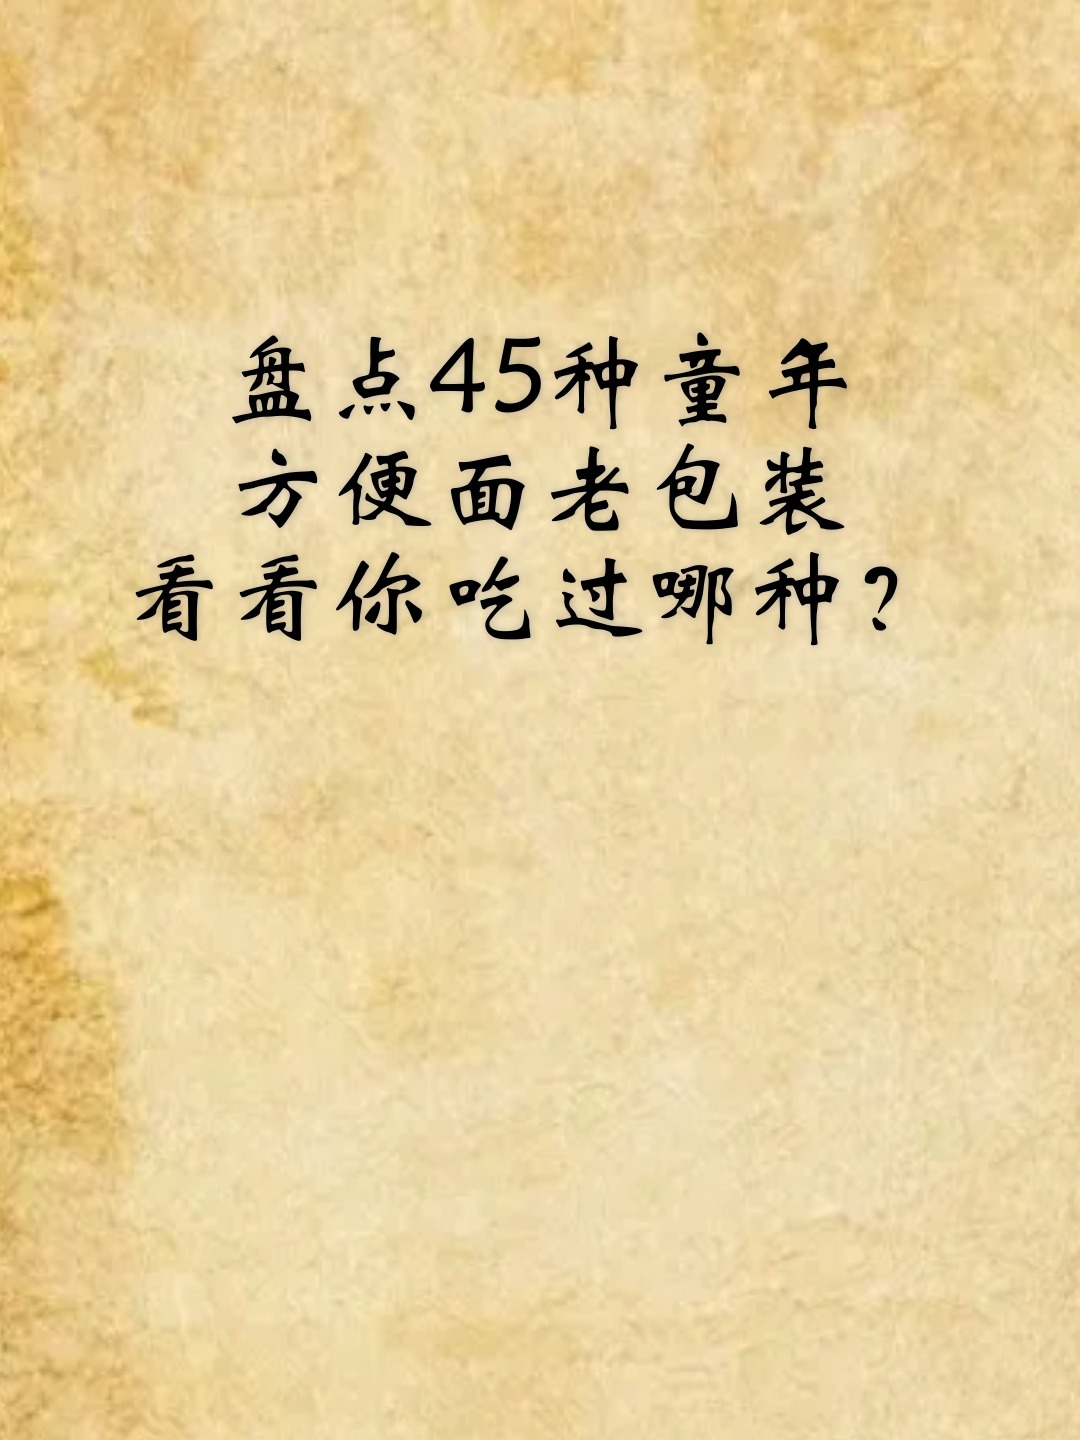 盘点45种童年
方便面老包装
看看你吃过哪种?